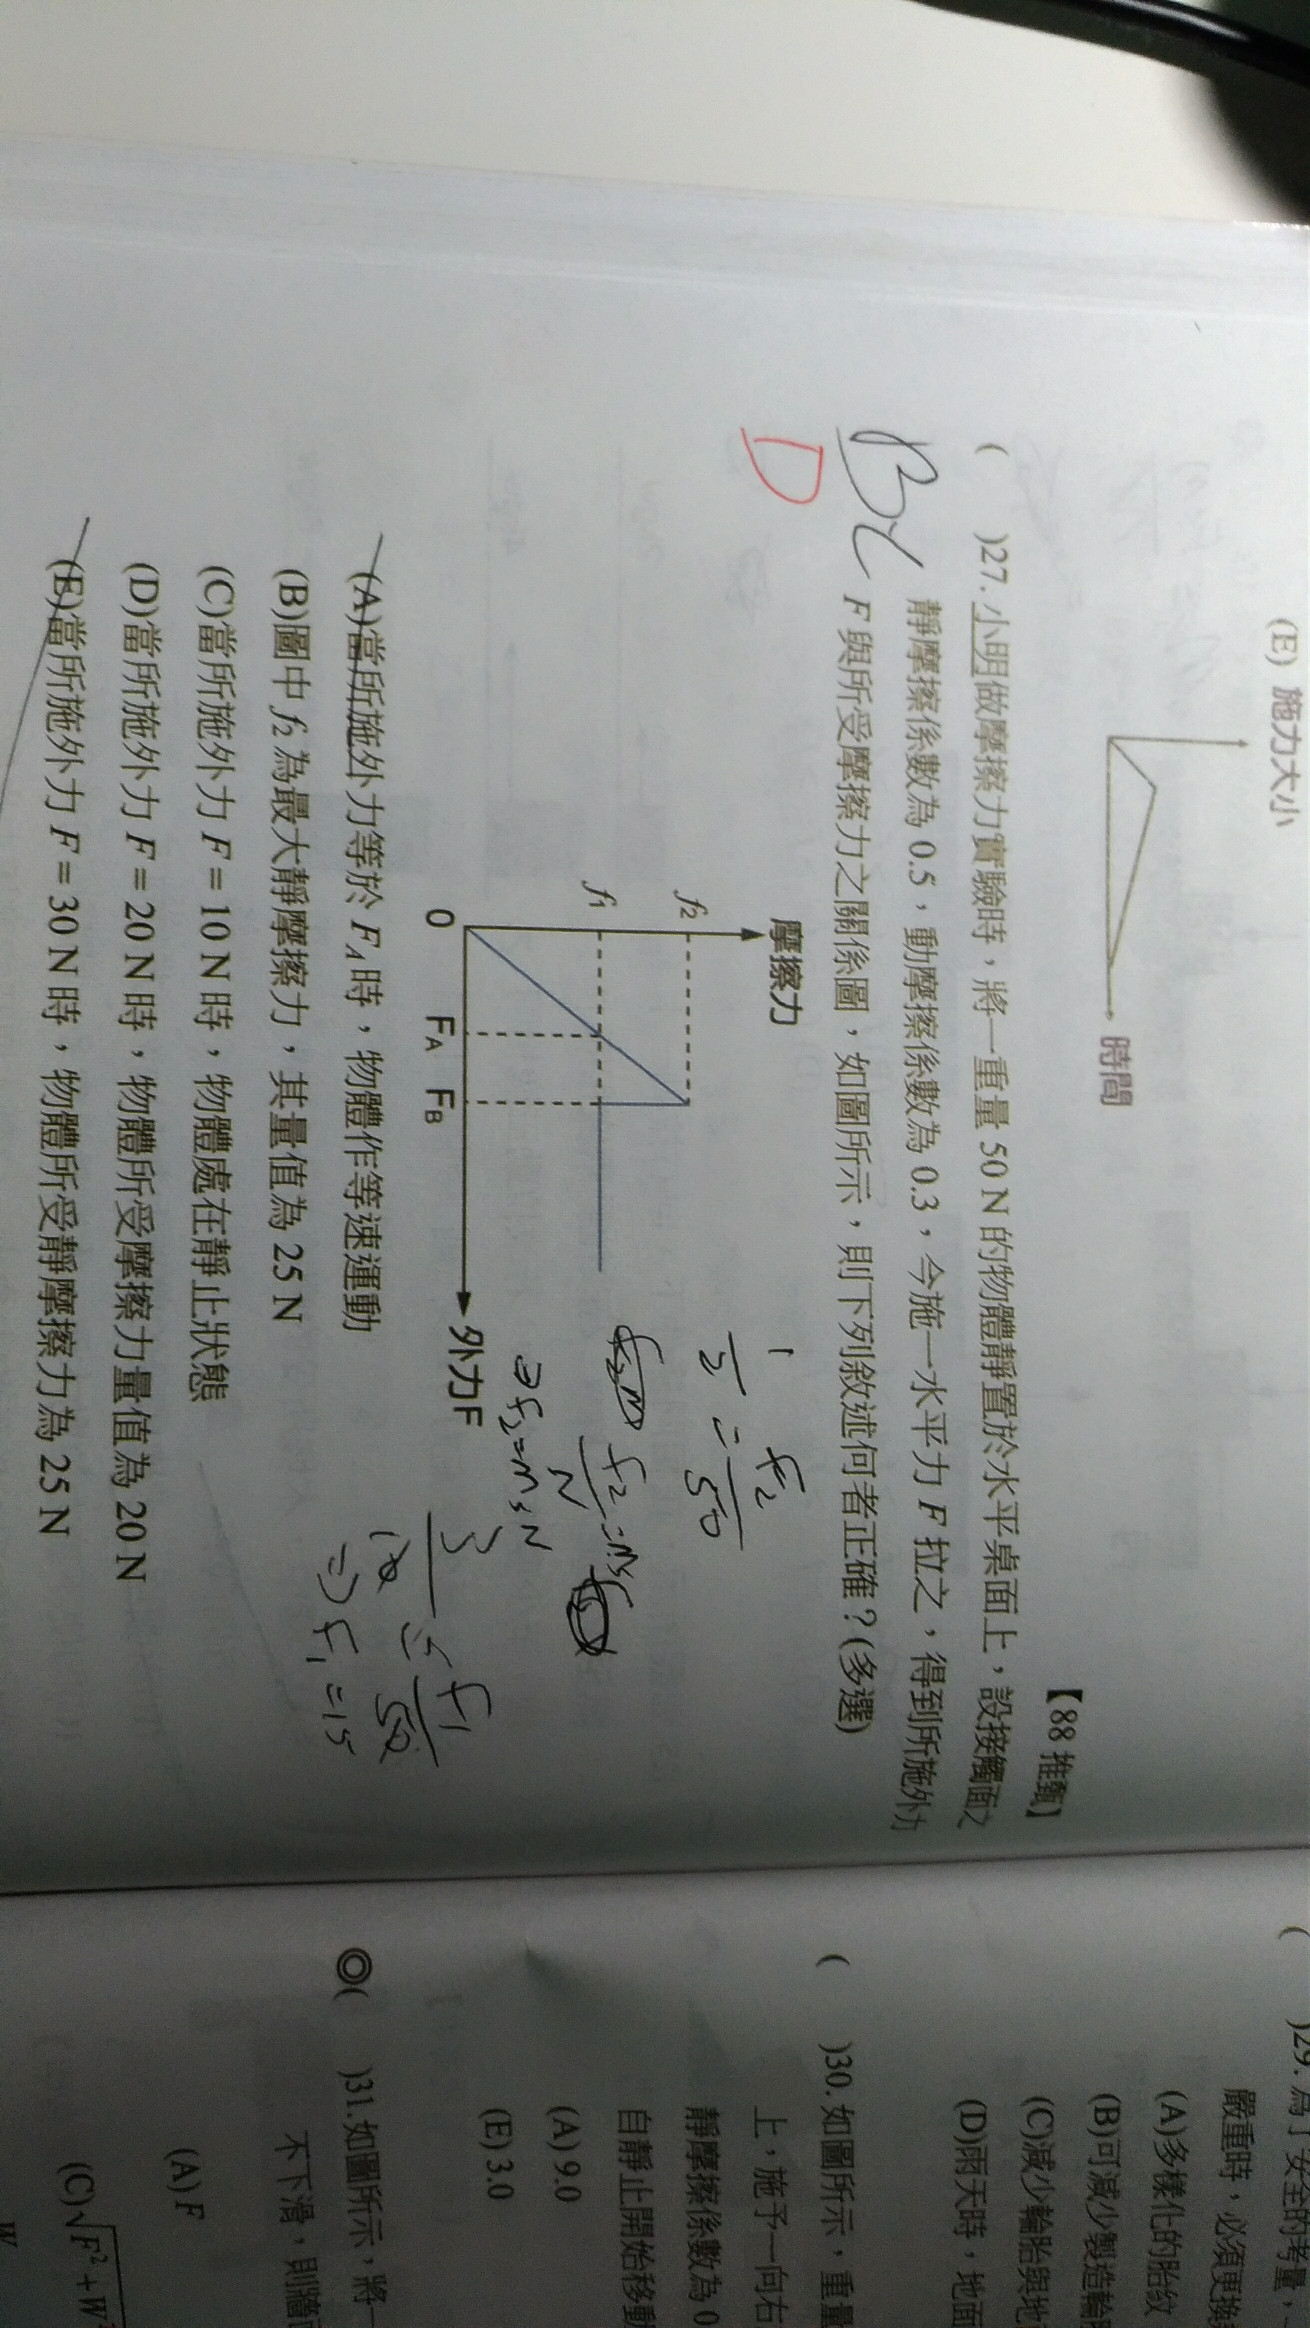 (E) 施力大小
時間
【88 推甄】
( )27. 小明做摩擦力實驗時，將一重量 50 N 的物體靜置於水平桌面上，設接觸面之
靜摩擦係數為 0.5，動摩擦係數為 0.3，今施一水平力 F 拉之，得到所施外力
F 與所受摩擦力之關係圖，如圖所示，則下列敘述何者正確？(多選)
BC
D
摩擦力
f₂
f₁
O
F_A F_B
外力 F
1/2 = f₂/50
f₂/N = Ms
⇒ f₂ = MsN
3/10 = f₁/50
⇒ f₁ = 15
(A)當所施外力等於 F_A 時，物體作等速運動
(B)圖中 f₂ 為最大靜摩擦力，其量值為 25 N
(C)當所施外力 F = 10 N 時，物體處在靜止狀態
(D)當所施外力 F = 20 N 時，物體所受摩擦力量值為 20 N
(E)當所施外力 F = 30 N 時，物體所受靜摩擦力為 25 N
( )29. 為了安全的考量，
嚴重時，必須更換
(A)多樣化的胎紋
(B)可減少製造輪胎
(C)減少輪胎與地
(D)雨天時，地面
( )30. 如圖所示，重量
上，施予一向右
靜摩擦係數為 0
自靜止開始移動
(A) 9.0
(E) 3.0
◎( )31. 如圖所示，將一
不下滑，則牆
(A) F
(C) √F² + W²
W